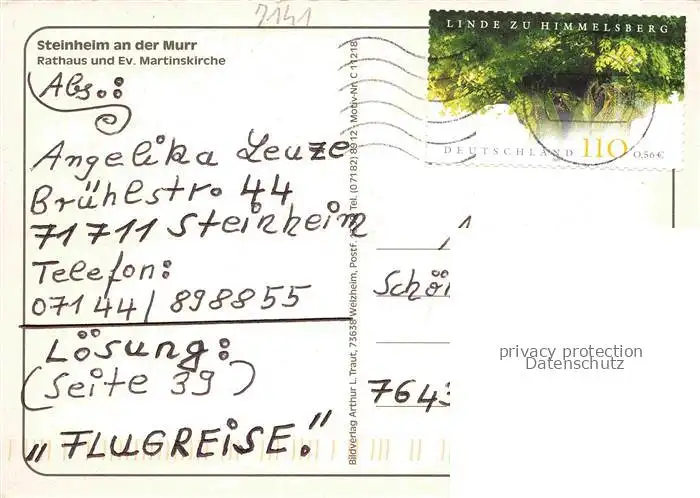 7141
LINDE ZU HIMMELSBERG
DEUTSCHLAND 110 0,56 €
Steinheim an der Murr
Rathaus und Ev. Martinskirche
Abs.:
Angelika Leuze
Brühlstr. 44
71711 Steinheim
Telefon:
07144/898855
Lösung:
(Seite 39)
„FLUGREISE."
Bildverlag Arthur L. Traut, 73638 Welzheim, Postf. Tel. (07182) 8912 · Motiv-Nr. C 11218
Schön
7643
privacy protection
Datenschutz